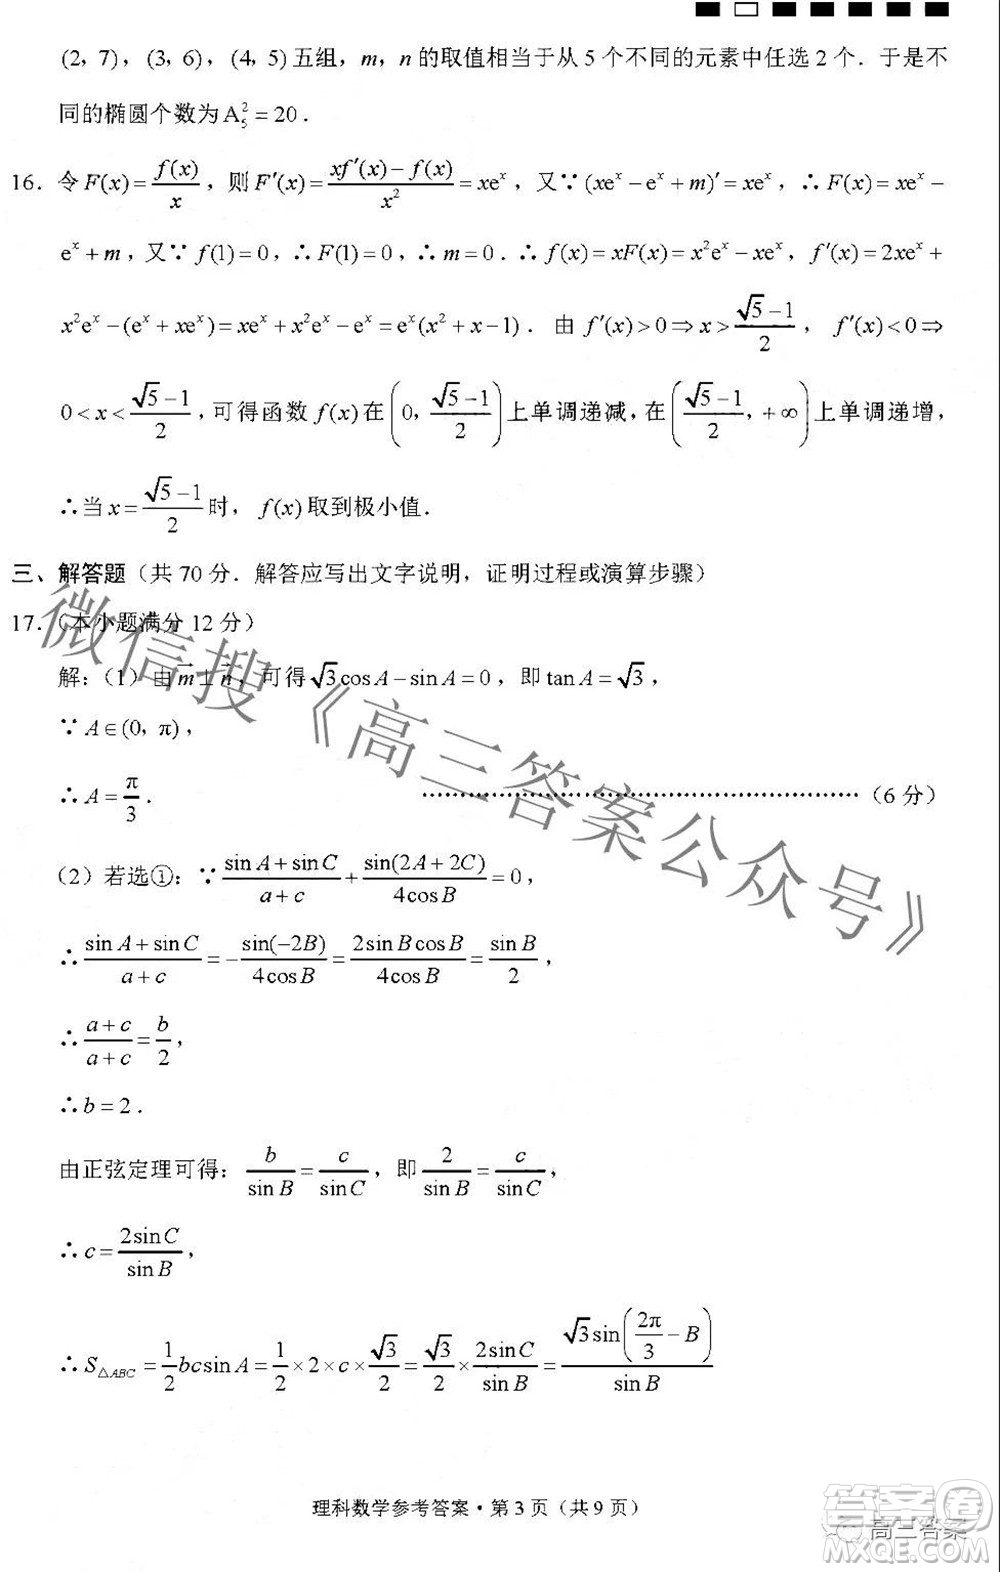 (2, 7), (3, 6), (4, 5)五组, m, n 的取值相当于从 5 个不同的元素中任选 2 个. 于是不
同的椭圆个数为 A₅² = 20.
16. 令 F(x) = f(x)/x, 则 F′(x) = (xf′(x) − f(x))/x² = xeˣ, 又∵ (xeˣ − eˣ + m)′ = xeˣ, ∴ F(x) = xeˣ −
eˣ + m, 又∵ f(1) = 0, ∴ F(1) = 0, ∴ m = 0. ∴ f(x) = xF(x) = x²eˣ − xeˣ, f′(x) = 2xeˣ +
x²eˣ − (eˣ + xeˣ) = xeˣ + x²eˣ − eˣ = eˣ(x² + x − 1). 由 f′(x) > 0 ⇒ x > (√5 − 1)/2, f′(x) < 0 ⇒
0 < x < (√5 − 1)/2, 可得函数 f(x) 在 (0, (√5 − 1)/2) 上单调递减, 在 ((√5 − 1)/2, +∞) 上单调递增,
∴当 x = (√5 − 1)/2 时, f(x) 取到极小值.
三、解答题(共 70 分. 解答应写出文字说明, 证明过程或演算步骤)
17. (本小题满分 12 分)
解: (1) 由 m⃗ ⊥ n⃗, 可得 √3cosA − sinA = 0, 即 tanA = √3,
∵ A∈(0, π),
∴ A = π/3. …………………………………………(6 分)
(2) 若选①: ∵ (sinA + sinC)/(a + c) + sin(2A + 2C)/(4cosB) = 0,
∴ (sinA + sinC)/(a + c) = −sin(−2B)/(4cosB) = 2sinBcosB/(4cosB) = sinB/2,
∴ (a + c)/(a + c) = b/2,
∴ b = 2.
由正弦定理可得: b/sinB = c/sinC, 即 2/sinB = c/sinC,
∴ c = 2sinC/sinB,
∴ S△ABC = 1/2 bcsinA = 1/2 × 2 × c × √3/2 = √3/2 × 2sinC/sinB = √3sin(2π/3 − B)/sinB
理科数学参考答案·第 3 页(共 9 页)
微信搜《高三答案公众号》
答案圈
高三答案